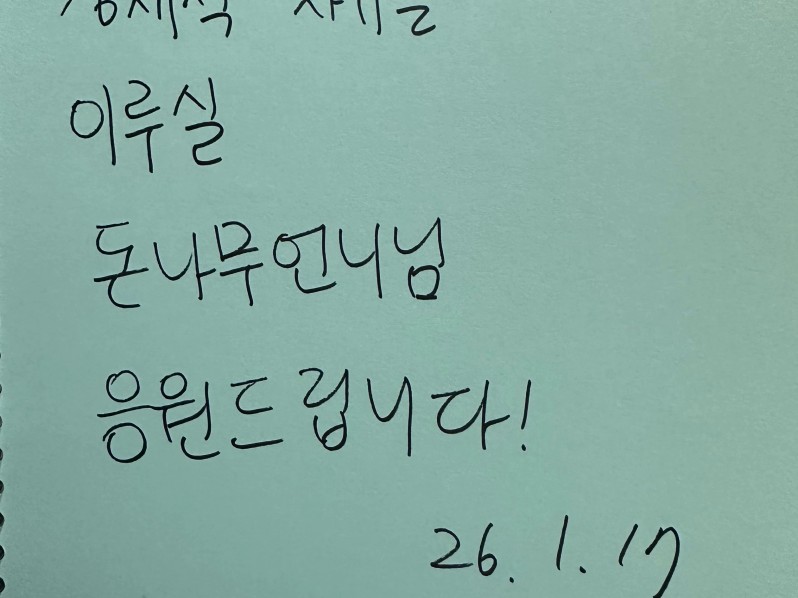 이루실
돈나무언니님
응원드립니다!
26. 1. 17